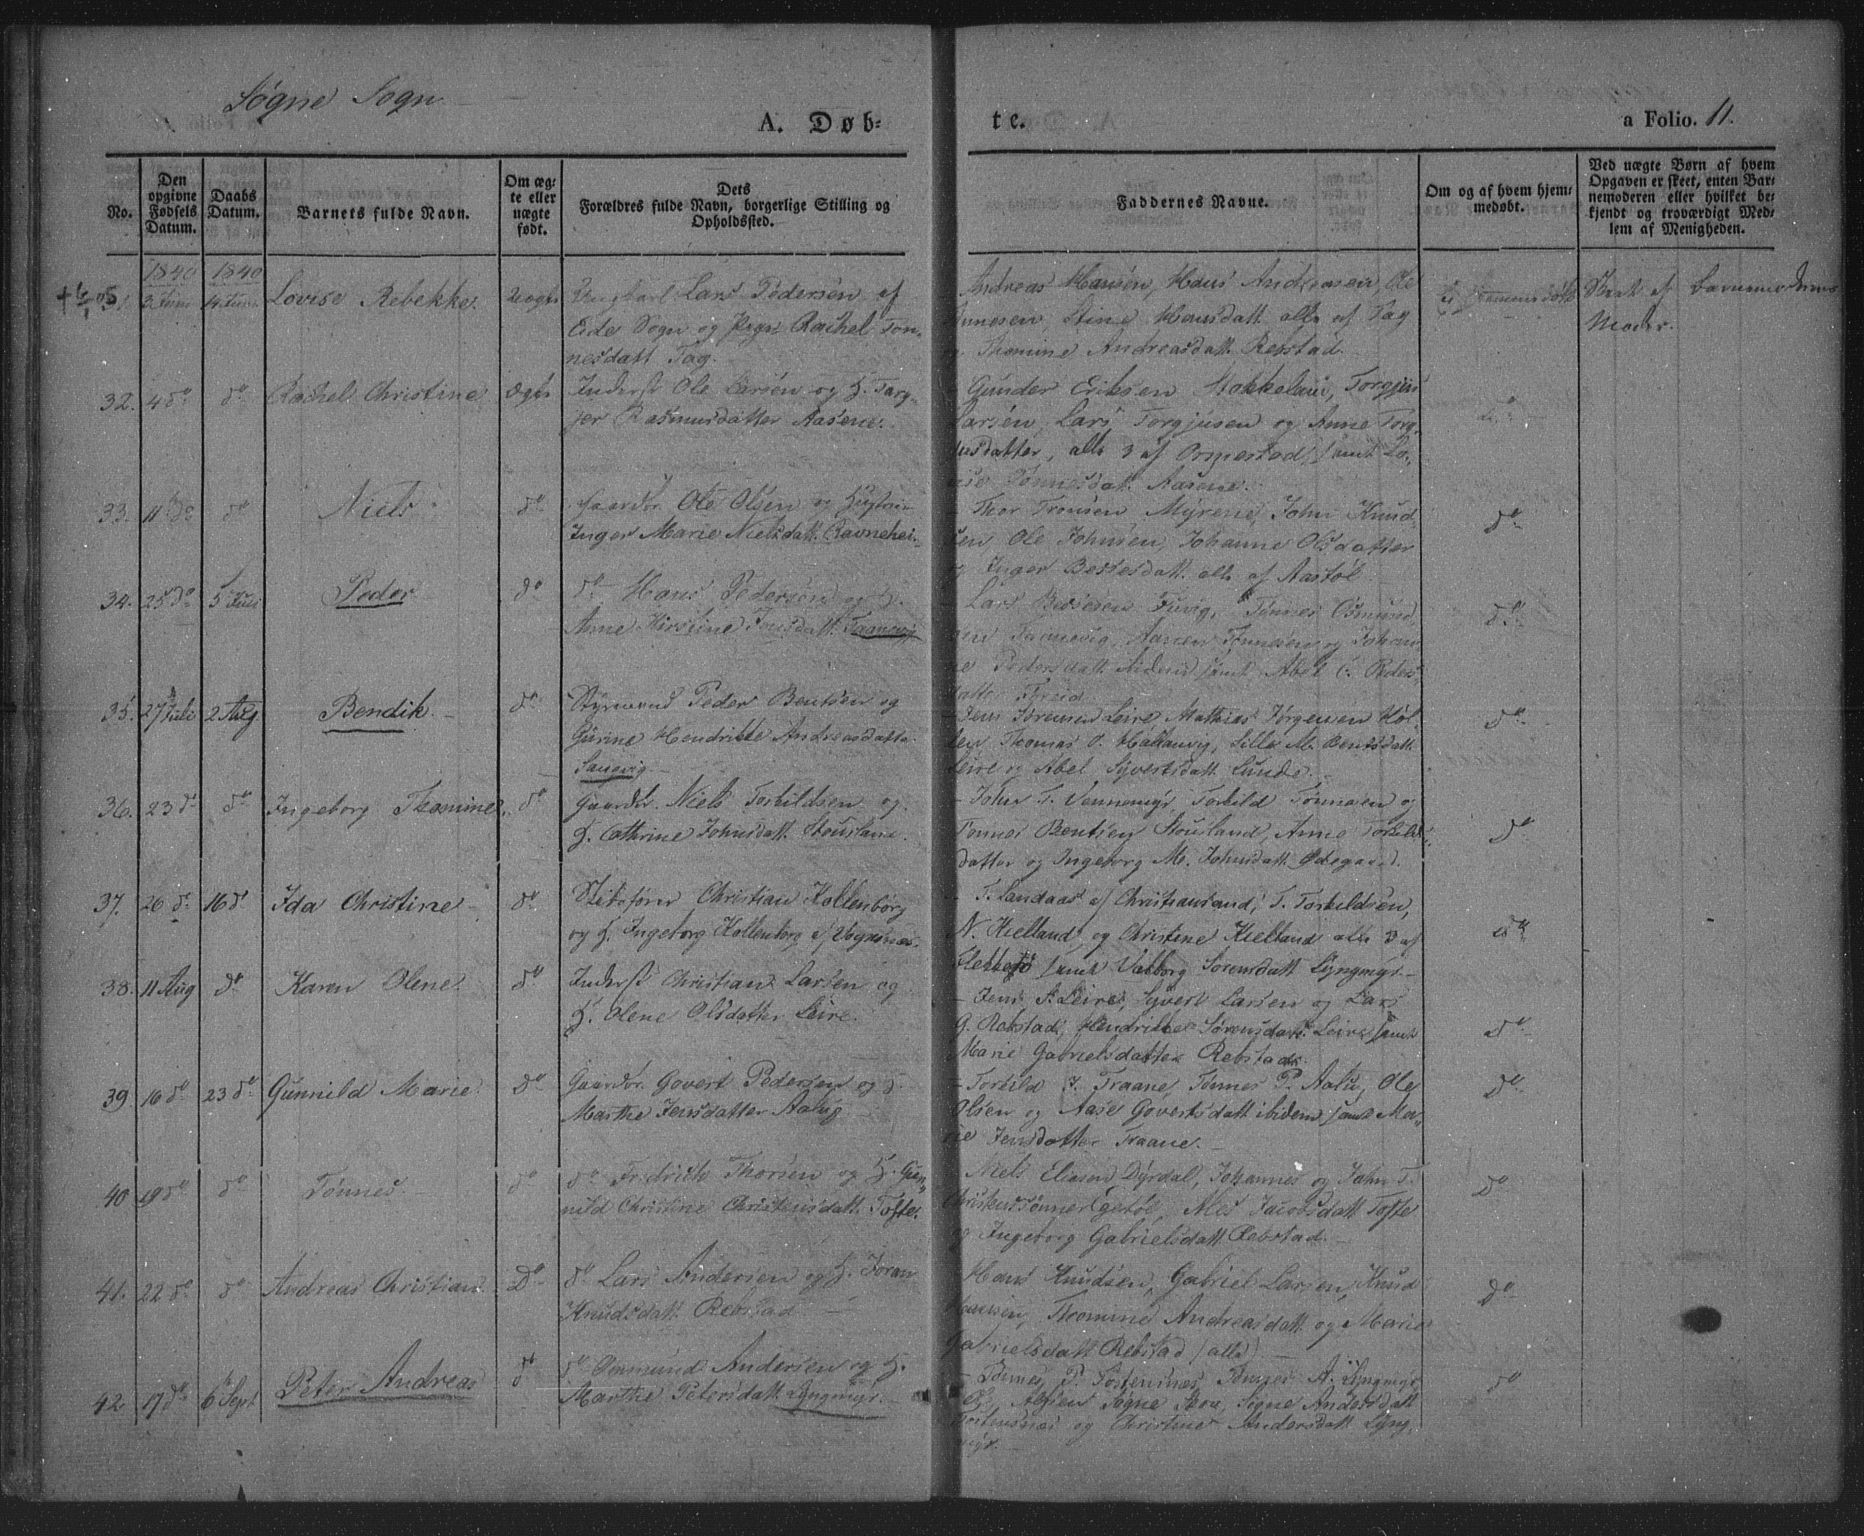 Søgne Sogn
A. Døb-
te.
a Folio. 11.
No.
Den opgivne Fødsels Datum.
Daabs Datum.
Barnets fulde Navn.
Om æg-te eller nægte født.
Dets Forældres fulde Navn, borgerlige Stilling og Opholdssted.
Faddernes Navne.
Om og af hvem hjem-medøbt.
Ved nægte Børn af hvem Opgaven er skeet, enten Bar-nemoderen eller hvilket be-kjendt og troværdigt Med-lem af Menigheden.
1840 1840
31. 3 Juni 14 Juni Lovise Rebekke. uægte Ungkarl Lars Pedersen af
Eide Sogn og Pigen Rachel Tøn-
nesdatt Tag.
Andreas Hansen, Hans Andreasen, Ole
Tønnesen, Stine Hansdatt alle af Tag
og Thomine Andreasdatt. Rebstad.
ei hjemmedøbt
af Barnemoderens
Moder.
32. 4 do do Rachel Christine ægte Inderst Ole Larsen og H. Targ-
jer Rasmusdatter Aasene.
Gunder Eriksen Stokkeland, Torgjus
Larsen, Lars Torgjusen og Anne Torg-
jusdatter, alle 3 af Ormestad samt Lo-
vise Tønnesdat. Aasene.
do
33. 11 do do Niels do Gaardbr. Ole Olsen og Hustru
Inger Marie Nielsdatt. Ravnehei-
- Thor Tronsen Myrene, John Knud-
sen, Ole Johnsen, Johanne Olsdatter
og Inger Bessesdatt. alle af Aastøl
do
34. 25 do 5 Juli Peder do do Hans Pedersen og H.
Anne Kirstine Jensdatt. Taanevig
- Lars Bessesen Tuvig, Tønnes Osmund-
sen Taanevig, Aanen Tønnesen og Johan-
ne Pedersdatt. samt Abel C. Peders-
datt.
do
35. 27 Juli 2 Aug Bendik. do Styrmand Peder Bentsen og
Gurine Hendrikke Andreasdatte
Sanevig
- Jens Sørensen Leire, Mathias Jørgensen Høl-
len, Thomas O. Hallanvig, Lille M. Bentsdatt.
Leire og Abel Syvertsdatt. Lunde.
do
36. 23 do do Ingeborg Thomine. do Gaardbr. Niels Torkildsen og
H. Cathrine Johnsdatt. Stousland.
- John T. Vennemyr, Torkild Tønnesen og
Tønnes Bentsen Stousland, Anne Torkilds-
datter og Ingeborg M. Johnsdatt. Ødegaard.
do
37. 26 do 16 do Ida Christine do Skibsfører Christian Kallenborg
og H. Ingeborg Kallenborg af Vognsnæs
- T. Landaas af Christiansand, T. Torkildsen,
N. Kielland og Christine Kielland alle 3 af
Flekkerø samt Valborg Sørensdatt Lyngmyr
do
38. 11 Aug do Karen Olene. do Inderst Christian Larsen og
H. Olene Olsdatter Leire.
- Jens A. Leire, Syvert Larsen og Lars
G. Rebstad, Hendrikke Sørensdatt. Leire samt
Marie Gabrielsdatter Rebstad.
do
39. 16 do 23 do Gunnild Marie do Gaardbr. Govert Pedersen og H.
Marthe Jensdatter Aalug
- Torkild J. Traane, Tønnes P. Aalu, Ole
Olsen og Aase Govertsdatt ibidem samt Ma-
rie Jensdatter Traane.
do
40 19 do do Tønnes. do do Fredrich Thorsen og H. Gun-
nild Christine Christensdatt. Tofte.
- Niels Eliasen Dyrdal, Johannes og John T.
Christensønner Egestøl, Ales Jacobsdatt Tofte
og Ingeborg Gabrielsdatt Rebstad.
do
41. 22 do do Andreas Christian do do Lars Andersen og H. Joran
Knudsdatt. Rebstad
Hans Knudsen, Gabriel Larsen, Knud
Hansen, Thomine Andreasdatt og Marie
Gabrielsdatt Rebstad (alle).
do
42. 17 do 6 Sept Peter Andreas do do Osmund Andersen og H.
Marthe Petersdatt Lyngmyr.
- Tønnes P. Tostensnes, Tønnes A. Lyngmyr
Søgne, Signe Andersdatt
Tostensnæs og Christine Andersdatt Lyng-
myr.
do